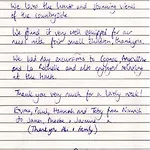 We love the house and stunning views
of the countryside.
We found it very well equipped for our
need with four small children, thankyou.
We had day excursions to
and La Rochelle and also enjoyed relaxing
at the house.
Thank you very much for a lovely week!
Emma, Paul, Hannah and Toby from Norwich
to James, Phoebe & Jasmine
(Thank you As a family)